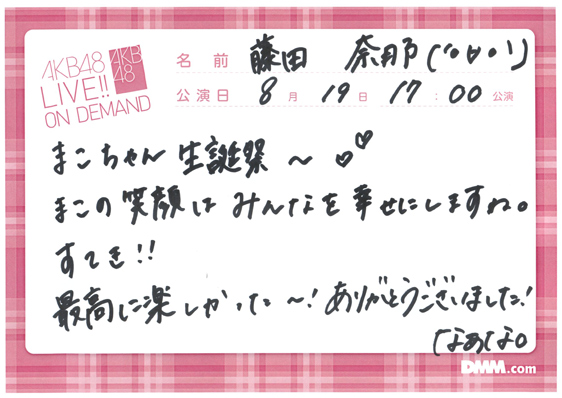 AKB48
LIVE!!
ON DEMAND
AKB
48
名前 藤田 奈那('∘∀∘')
公演日 8月19日17:00公演
まこちゃん 生誕祭 〜 ♡♡
まこの笑顔は みんなを幸せにしますね。
すてき!!
最高に楽しかった〜! ありがとうございました!
なぁな。
DMM.com